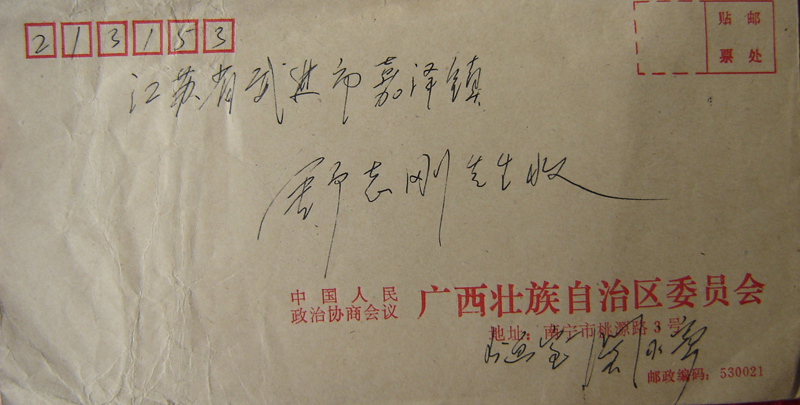 213153
贴邮
票处
江苏省武进市嘉泽镇
舒志刚先生收
中国人民
政治协商会议
广西壮族自治区委员会
地址：南宁市桃源路3号
邮政编码：530021